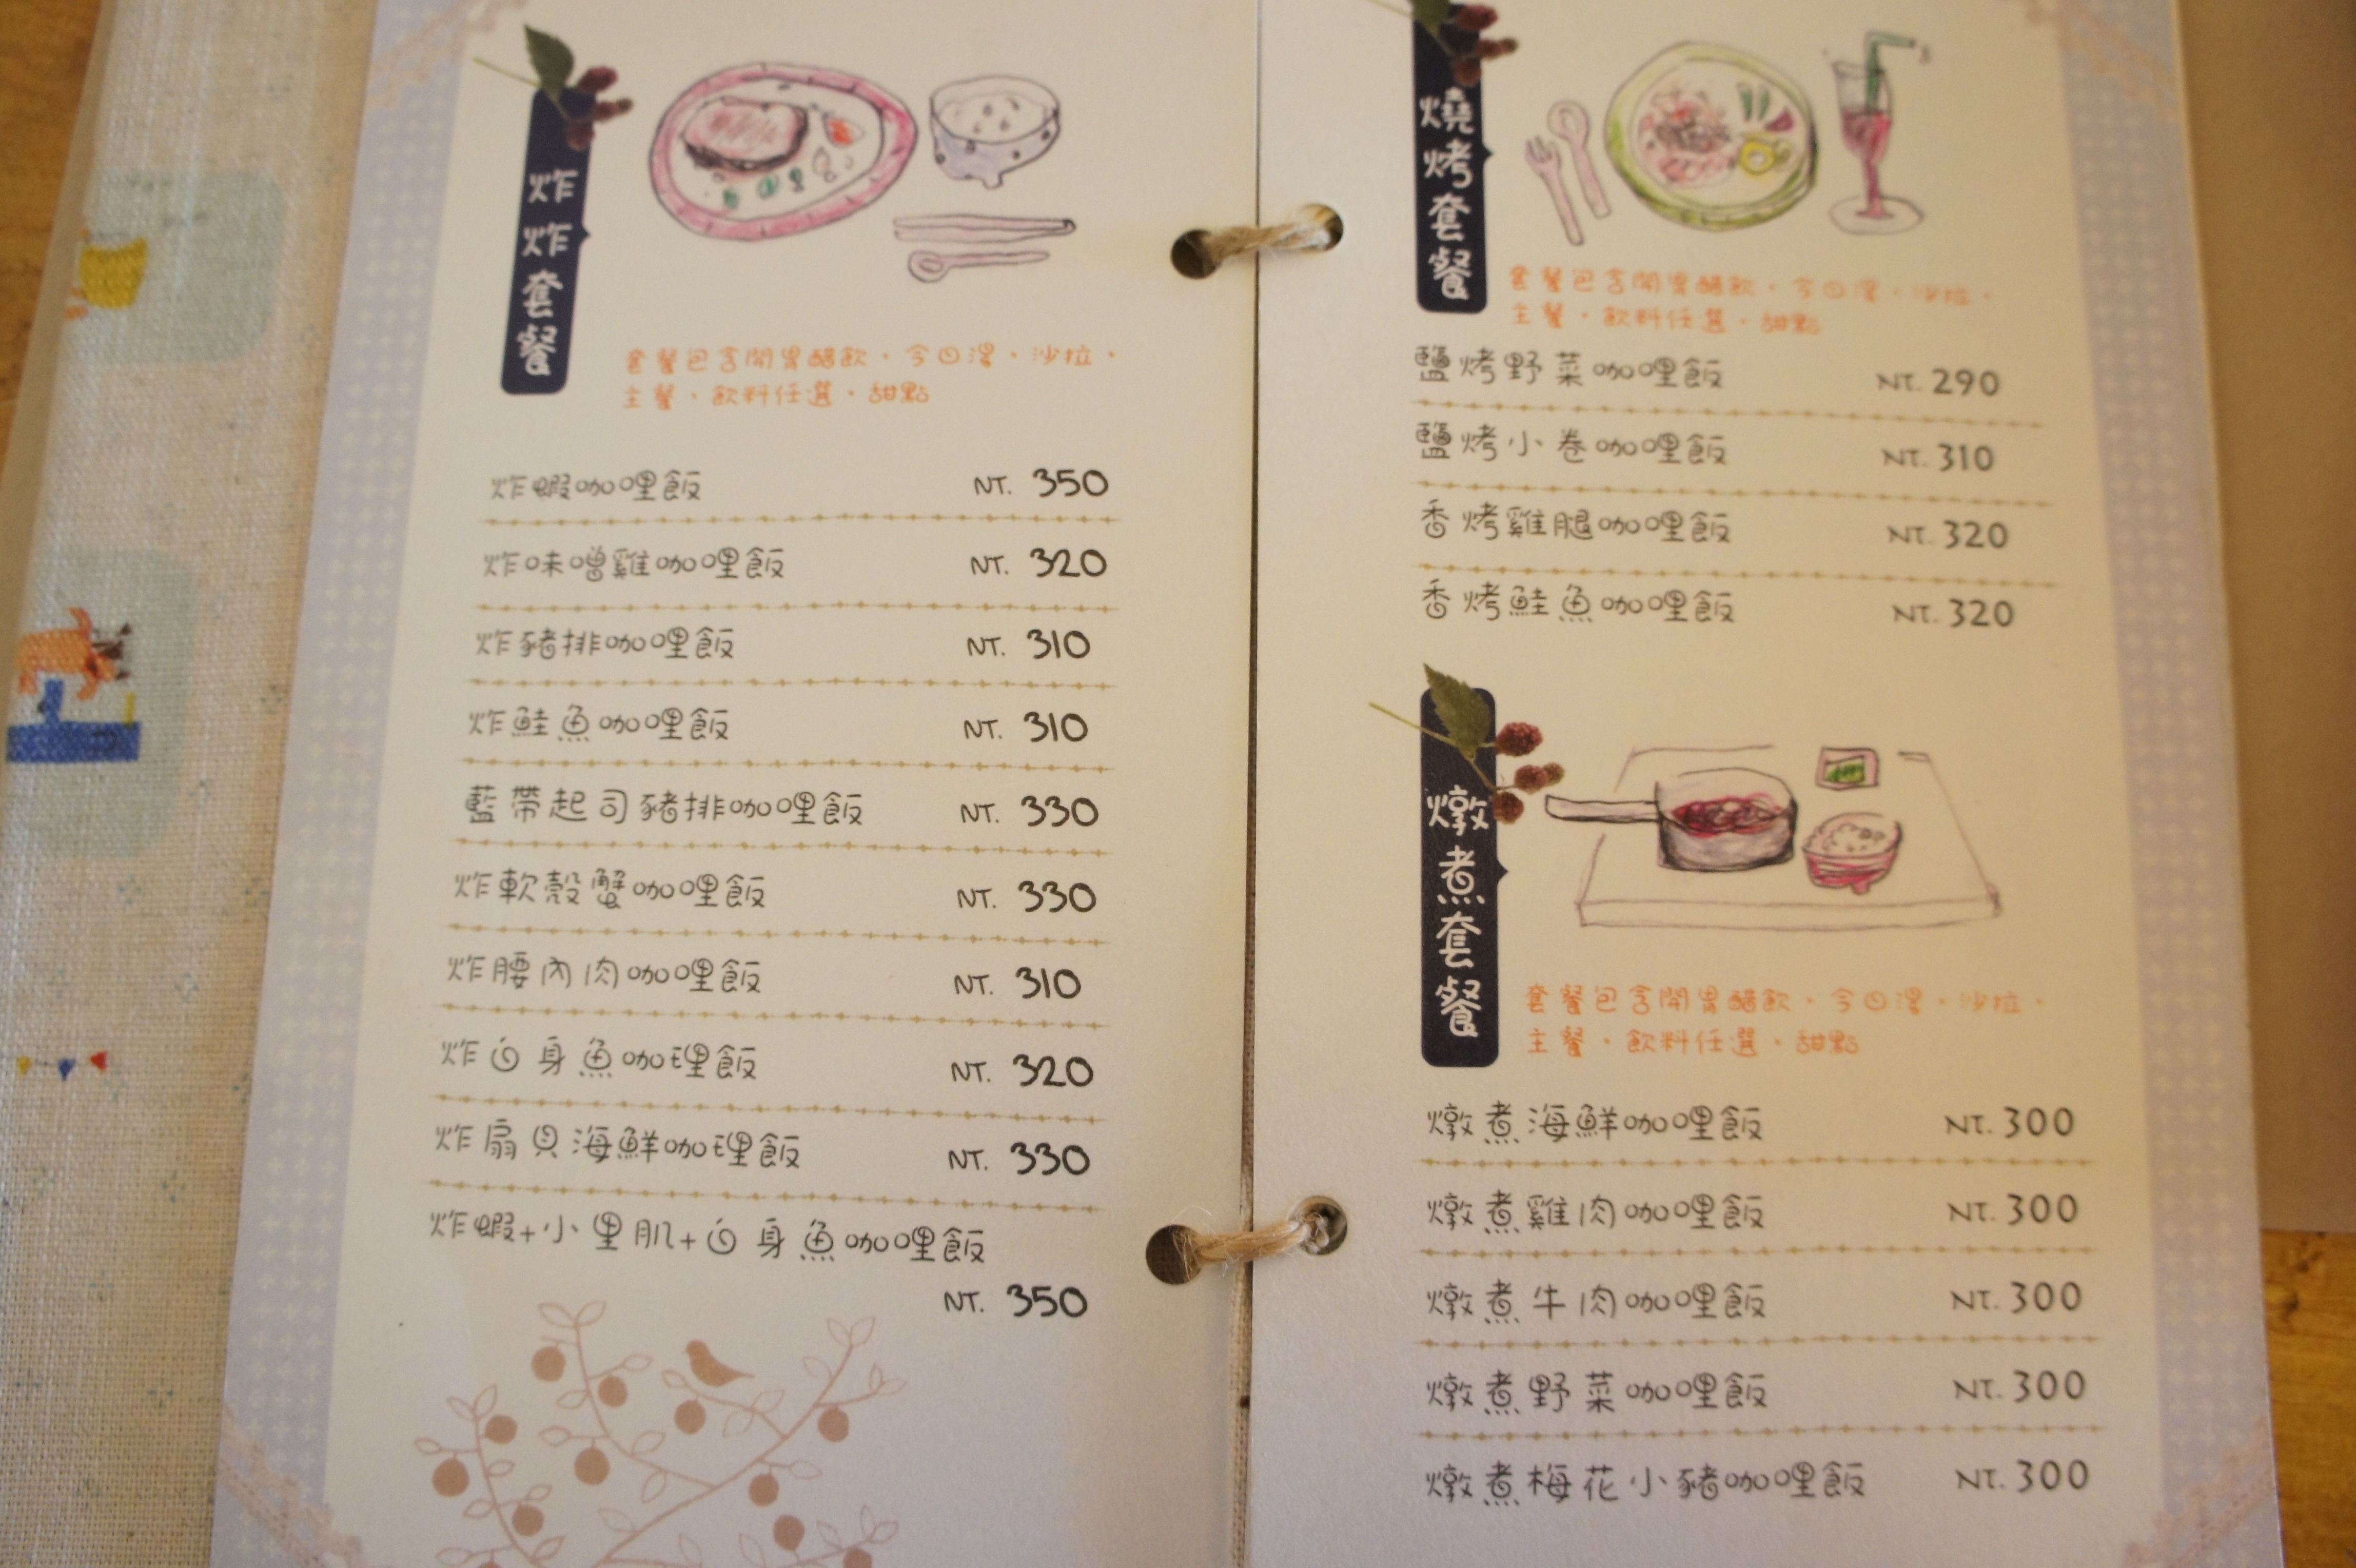 炸炸套餐
套餐包含開胃醋飲·今日湯·沙拉·
主餐·飲料任選·甜點
炸蝦咖哩飯 NT. 350
炸味噌雞咖哩飯 NT. 320
炸豬排咖哩飯 NT. 310
炸鮭魚咖哩飯 NT. 310
藍帶起司豬排咖哩飯 NT. 330
炸軟殼蟹咖哩飯 NT. 330
炸腰內肉咖哩飯 NT. 310
炸白身魚咖理飯 NT. 320
炸扇貝海鮮咖理飯 NT. 330
炸蝦+小里肌+白身魚咖哩飯
NT. 350
燒烤套餐
套餐包含開胃醋飲·今日湯·沙拉·
主餐·飲料任選·甜點
鹽烤野菜咖哩飯 NT. 290
鹽烤小卷咖哩飯 NT. 310
香烤雞腿咖哩飯 NT. 320
香烤鮭魚咖哩飯 NT. 320
燉煮套餐
套餐包含開胃醋飲·今日湯·沙拉·
主餐·飲料任選·甜點
燉煮海鮮咖哩飯 NT. 300
燉煮雞肉咖哩飯 NT. 300
燉煮牛肉咖哩飯 NT. 300
燉煮野菜咖哩飯 NT. 300
燉煮梅花小豬咖哩飯 NT. 300